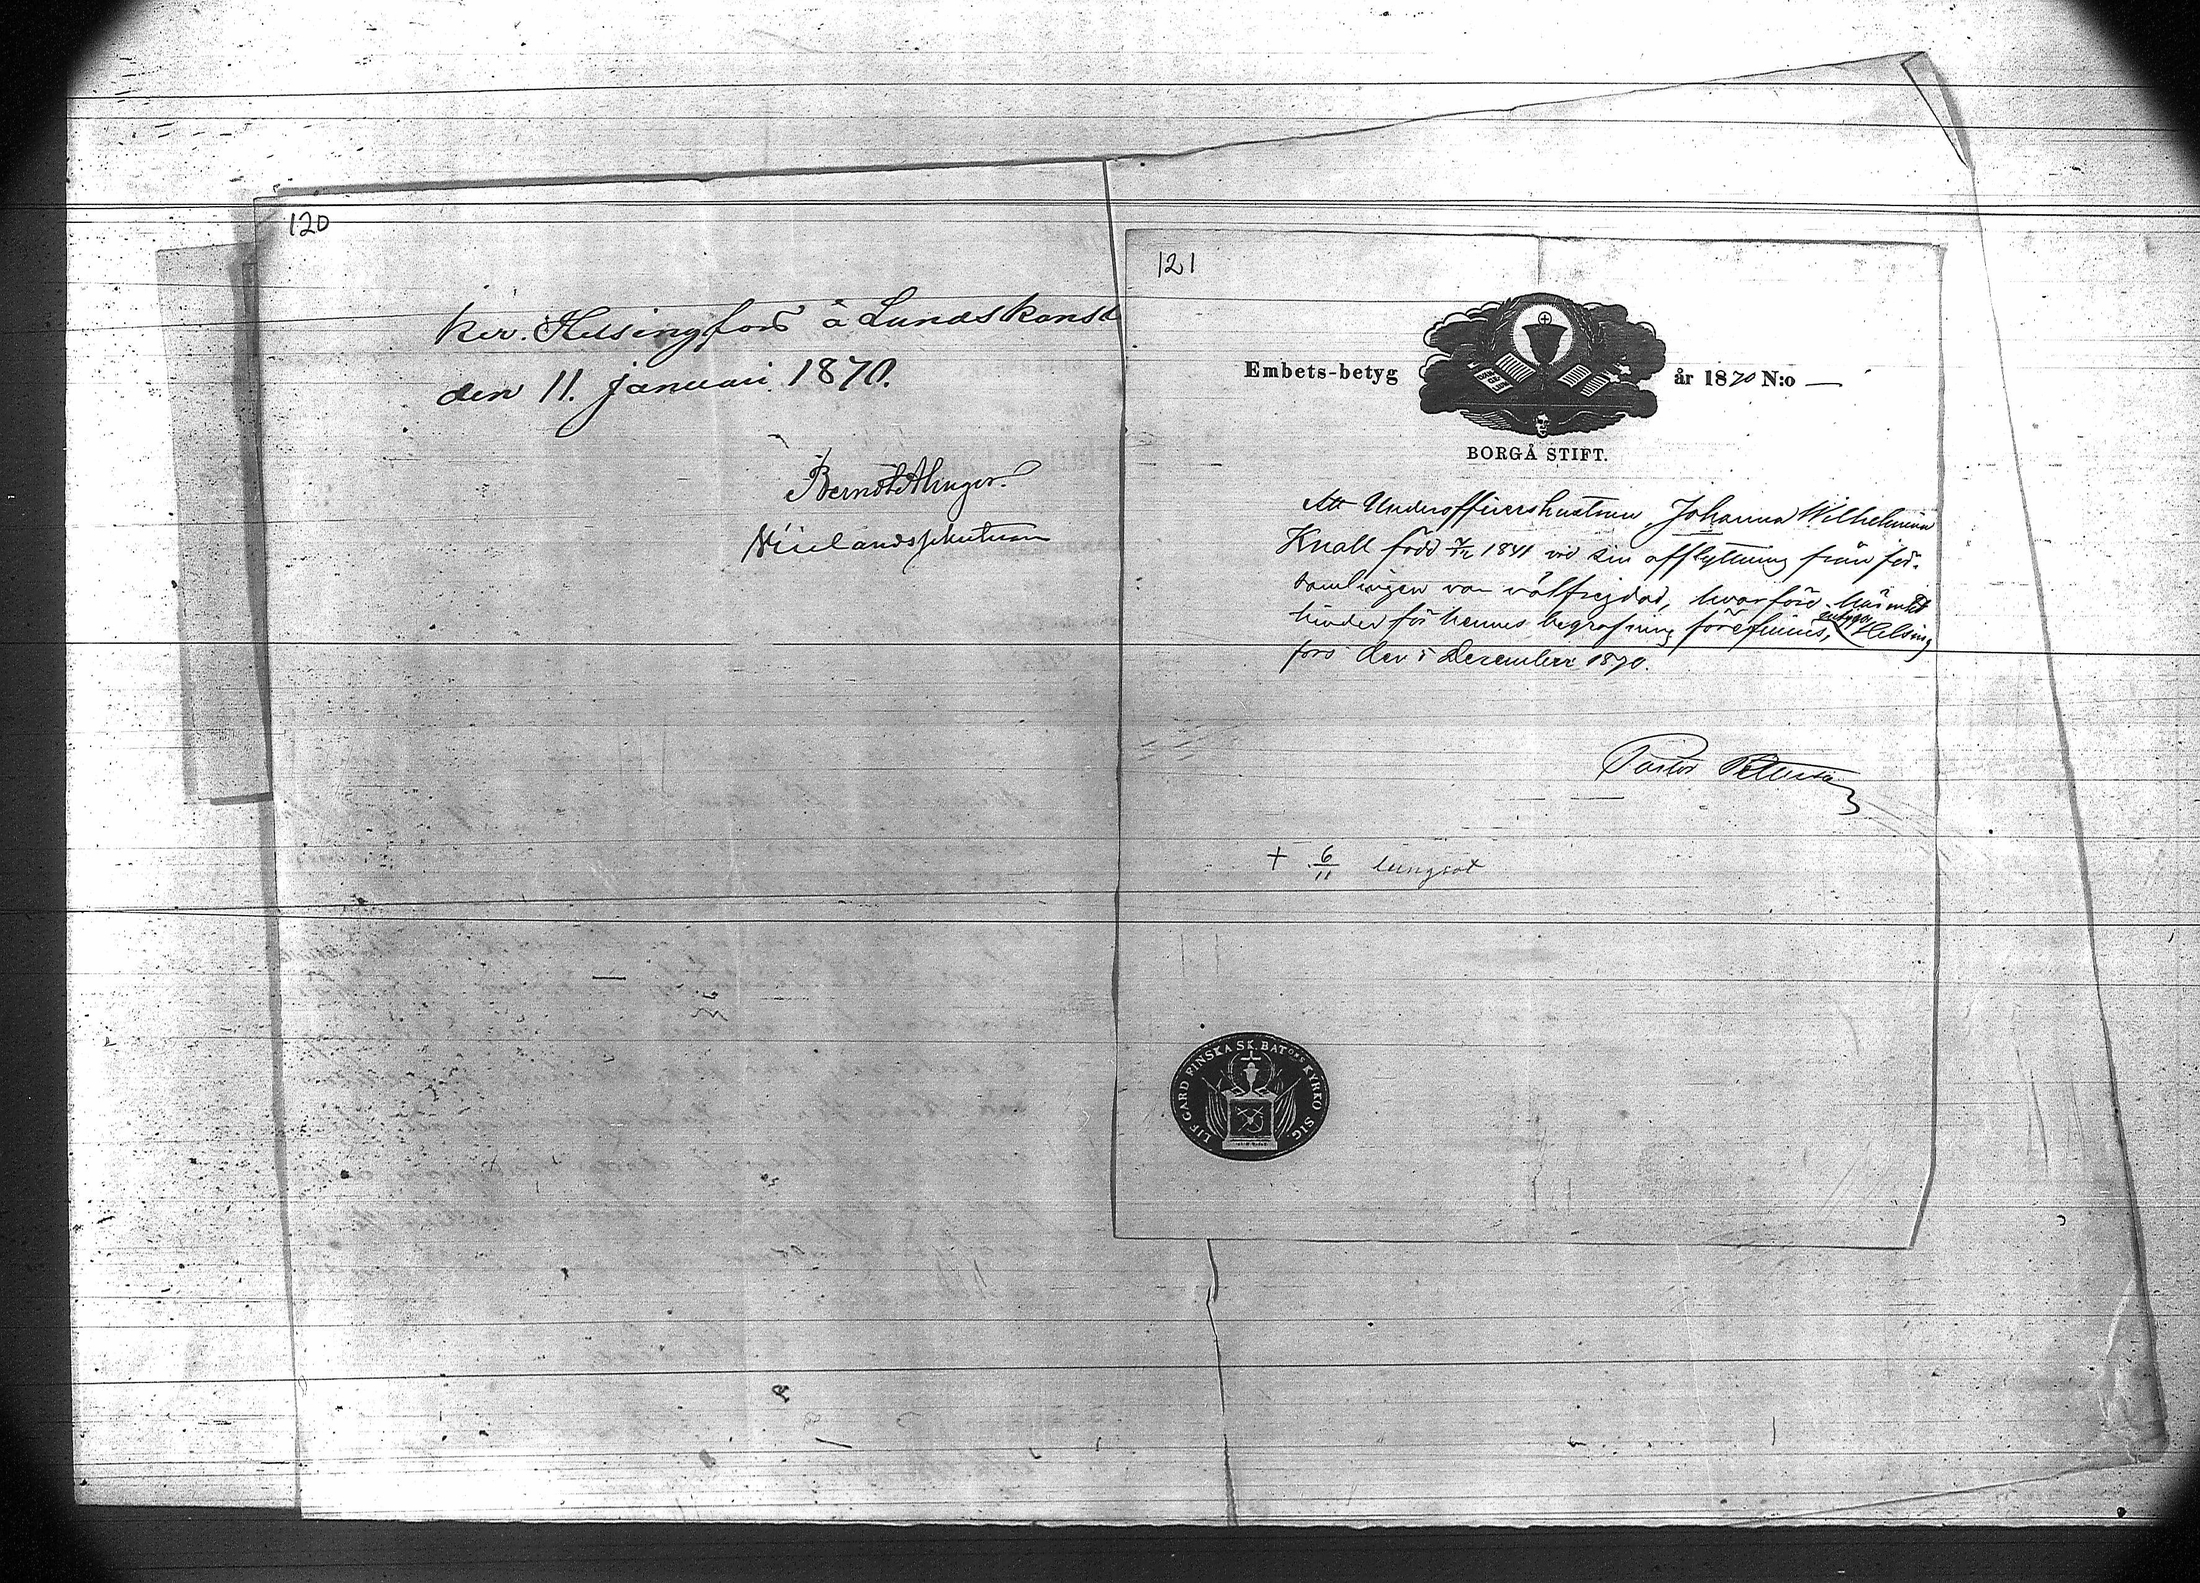 120
Helsingfors å Landskansli
den 11. januari 1870.
121
Embets-betyg år 1870 N:o —
BORGÅ STIFT.
Att Underofficershustrun Johanna Wilhelmina
Knall född 1841 vid sin afflyttning från för-
samlingen var välfrejdad, hvarföre
hinder för hennes begrafning förefinnes, Helsing
fors den 5 December 1870.
Pastor
+ 6/11 lungsot
LIFGARD FINSKA SK. BAT:ONS KYRKO SIG.